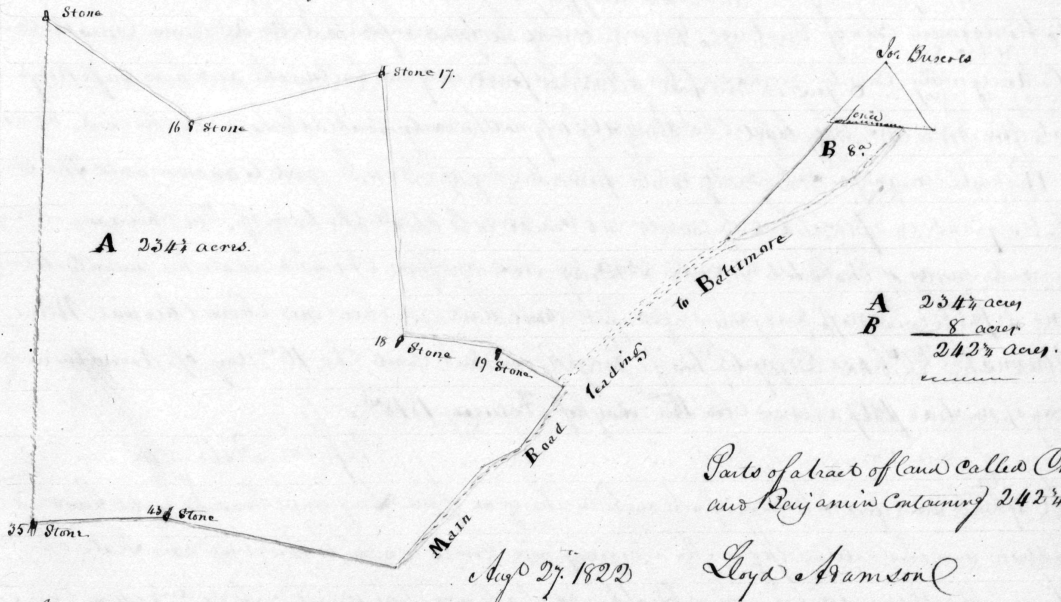 Stone
16 Stone
Stone 17.
Jos. Buscots
Pond
B 8a.
A 234¾ acres.
18 Stone
19 Stone.
Main Road leading to Baltimore
A 234¾ acres
B 8 acres
242¾ acres.
35 Stone.
43 Stone
Parts of a tract of land called
and Benjamin Containing 242¾
Augt 27th 1822
Lloyd Adamson